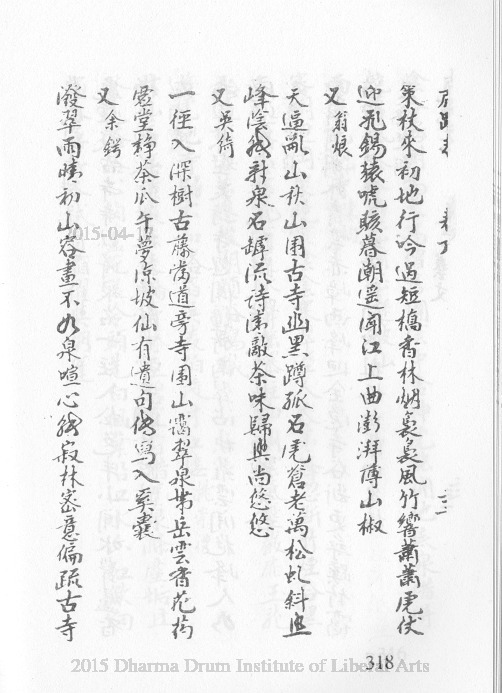 策杖來初地行吟過短橋香林烟裊裊風竹響蕭蕭虎伏
迎飛錫猿唬駭暮潮遙聞江上曲澎湃薄山椒
又翁
天逼亂山秋山圍古寺幽黑蹲孤石虎蒼老萬松虬斜
峰陰新泉石罅流詩清敵茶味歸興尚悠悠
又吳綺
一徑入深樹古藤當道旁寺圍山靄翠泉帶岳雲香花
堂靜茶瓜午夢涼坡仙有遺句寫入奚囊
又余鍔
潑翠雨晴初山容畫不如泉喧心寂林密意偏疏古寺
2015-04-17
318
2015 Dharma Drum Institute of Liberal Arts